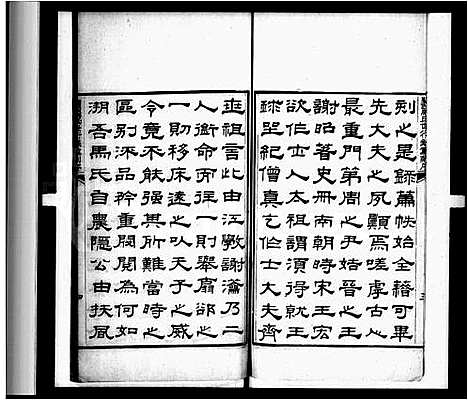 刻之是錄蕭帙始全繙可畢
先大夫之夙願焉嗟虖古之
最重門第周之尹姞晉之王
謝昭著史冊南朝時宋王宏
欲作士人太祖謂須得就王
球坐紀僧真乞作士大夫齊
世祖言此由江斅謝瀹乃二
人銜命而往一則舉扇卻之
一則移床遠之以天子之威
令竟不能强其所難當時之
區別流品矜重閥閱為何如
溯吾馬氏自農隱公由扶風
三
四